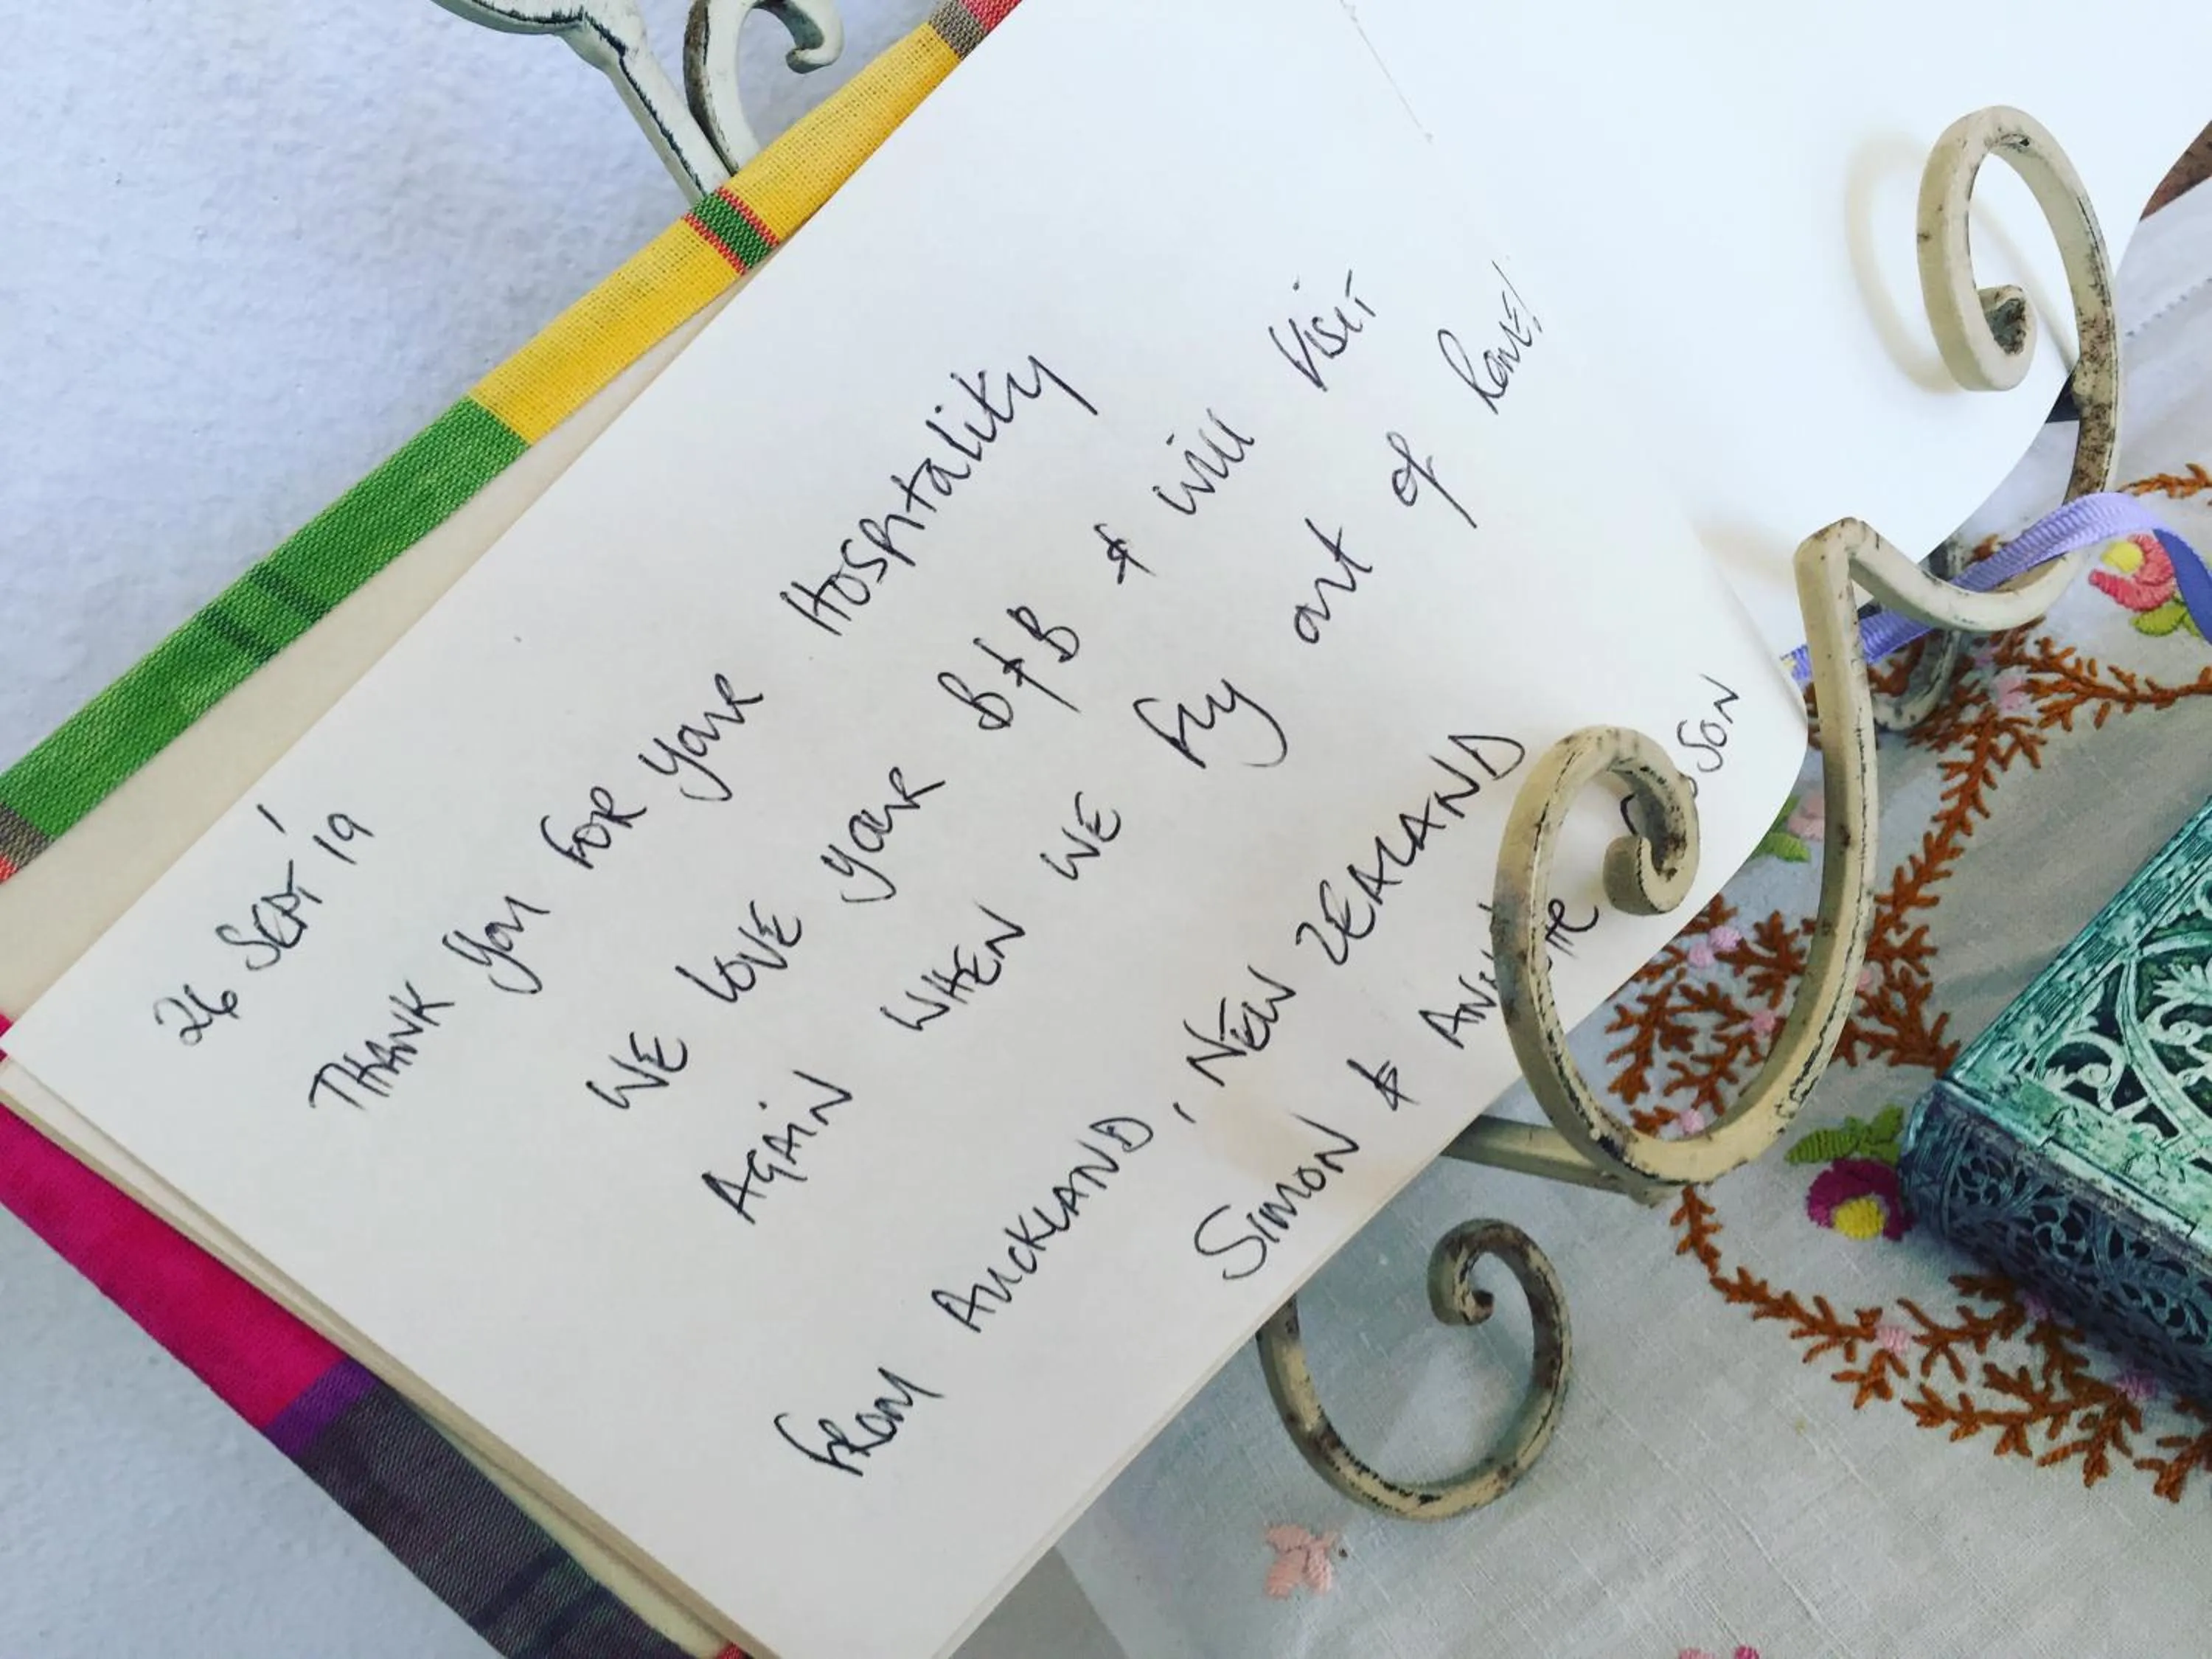 26 SEPT '19
THANK you FOR your HOSPITALITY
WE LOVE your B+B & will VISIT
AGAIN WHEN WE fly out of
FROM AUCKLAND, NEW ZEALAND
SIMON &